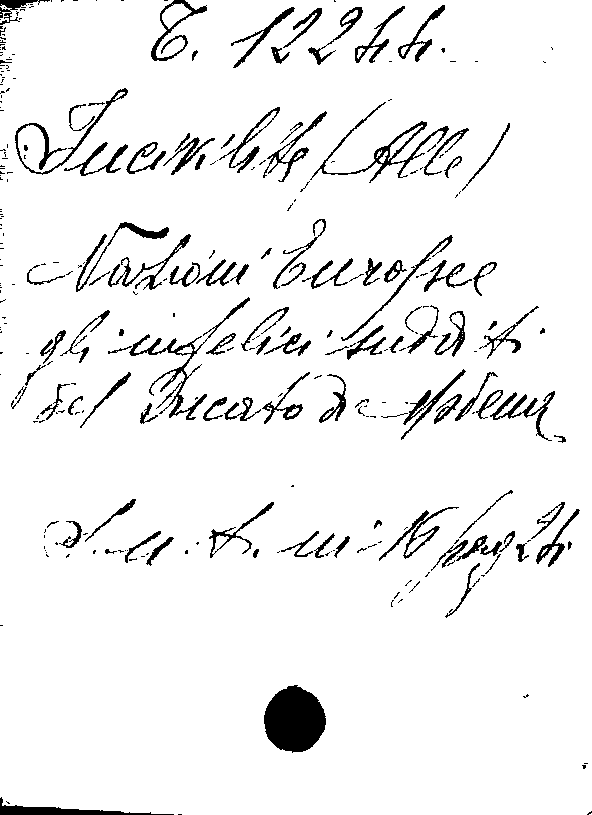 T. 12244.
Incivilite (Alle)
Nazioni Europee
gli infelici sudditi
del Ducato di Modena
S. n. t. in-16 pag 24